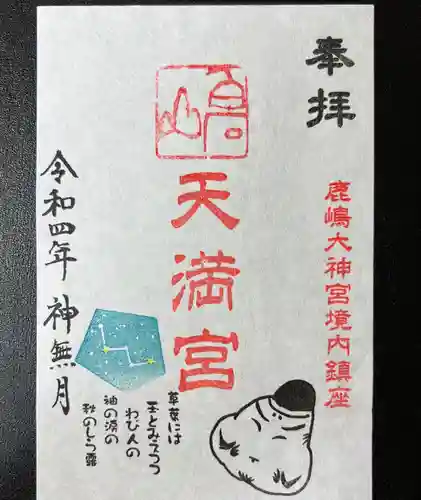 奉拝
鹿嶋大神宮境内鎮座
天満宮
草葉には
玉とみえつつ
わび人の
袖の涙の
秋のしら露
令和四年 神無月